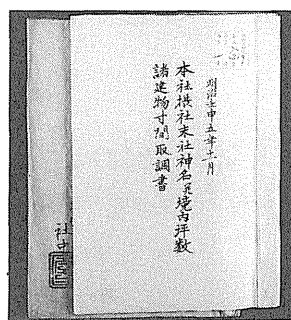 明治壬申五年十一月
本社摂社末社神名並境内坪数
諸建物寸間取調書
社中